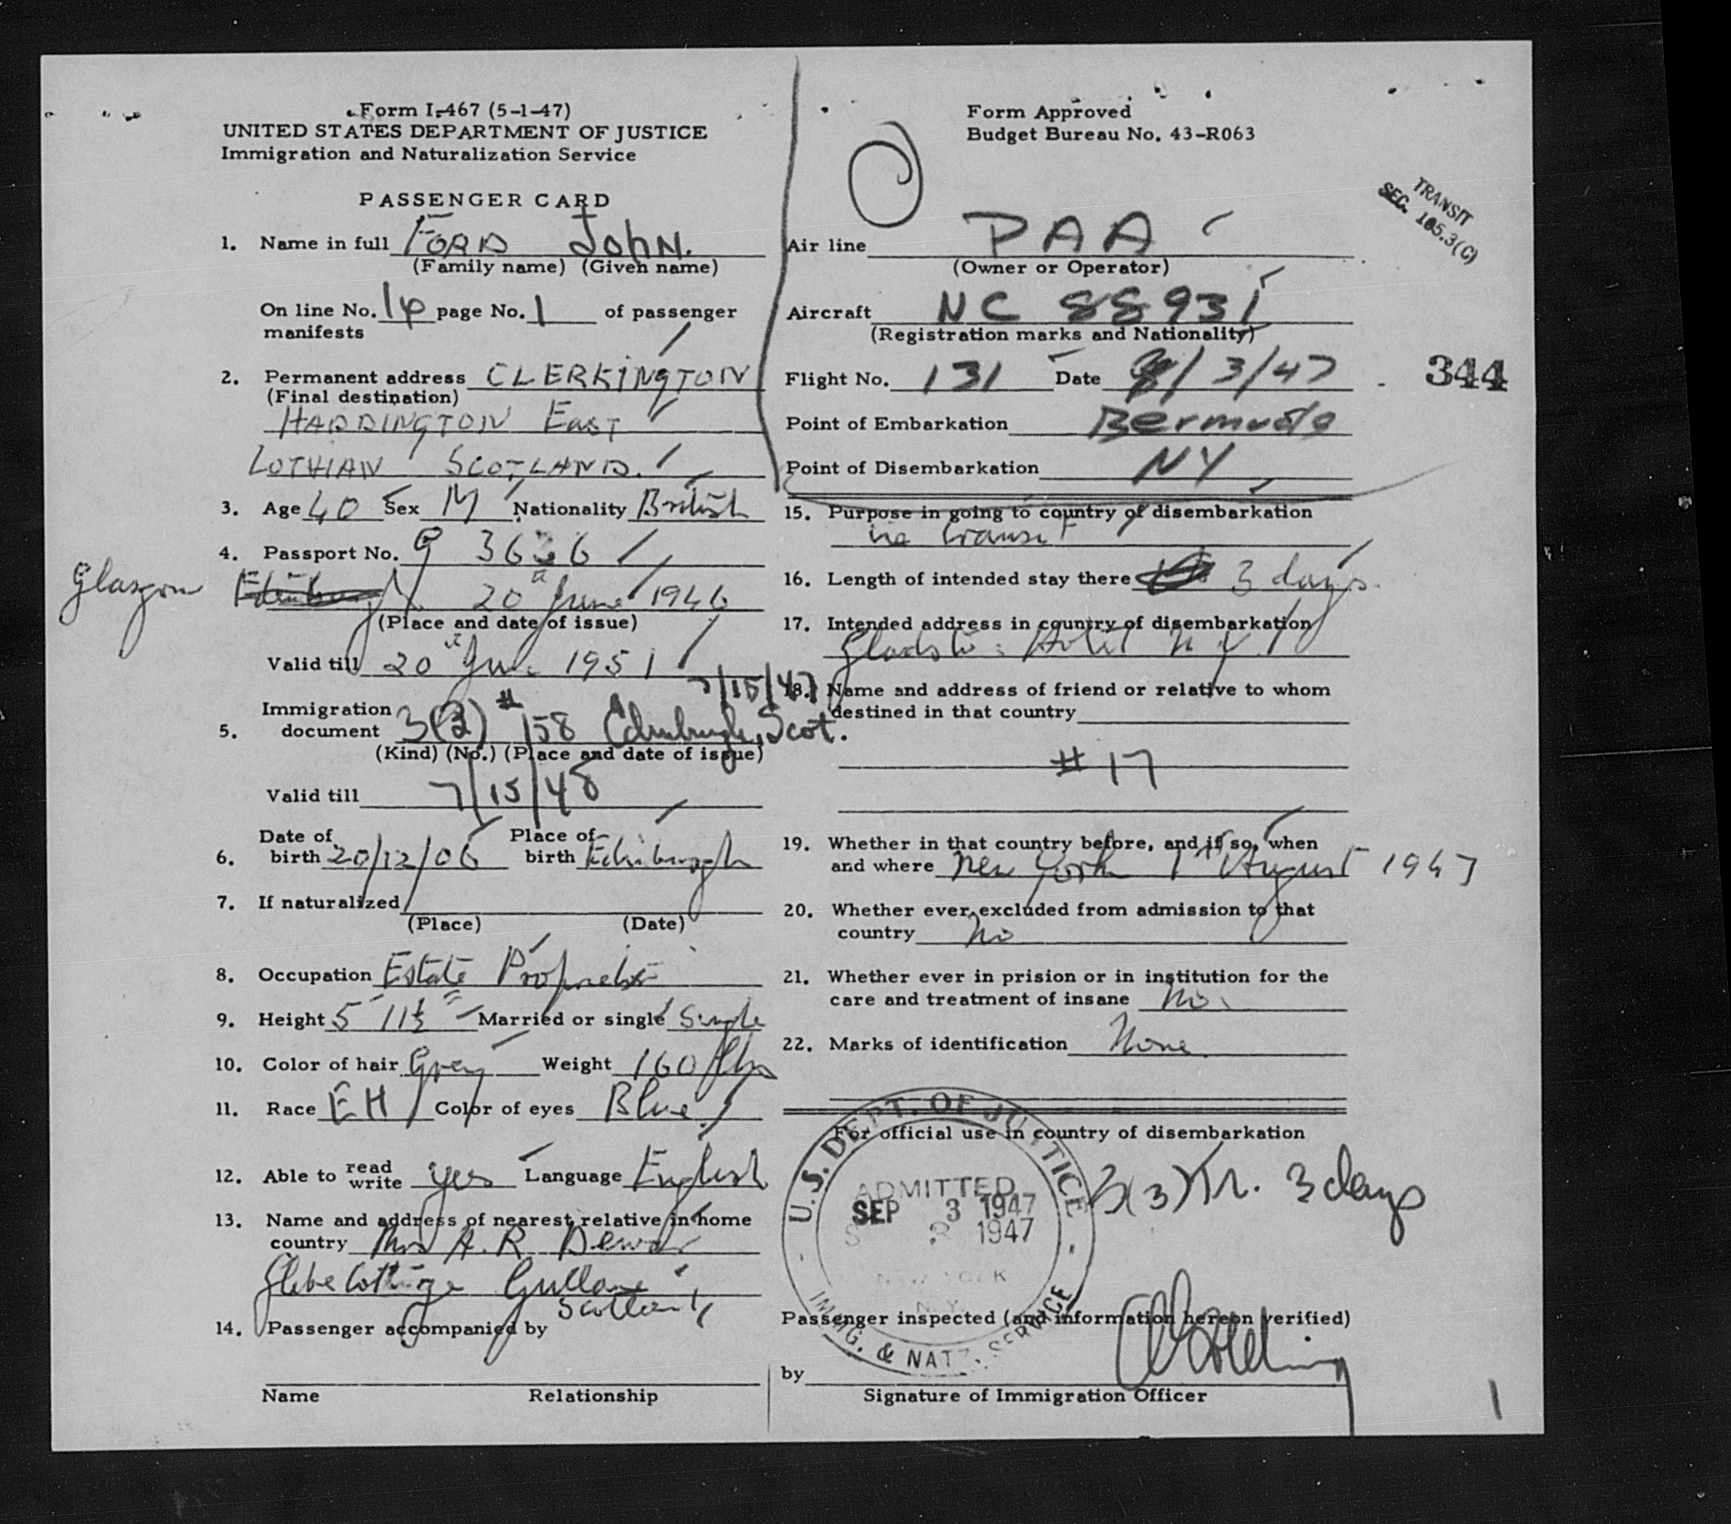 Form I-467 (5-1-47)
UNITED STATES DEPARTMENT OF JUSTICE
Immigration and Naturalization Service
PASSENGER CARD
1. Name in full FORD JOHN.
(Family name) (Given name)
On line No. 14 page No. 1 of passenger
manifests
2. Permanent address CLERKINGTON
(Final destination)
HADDINGTON EAST
LOTHIAN SCOTLAND.
3. Age 40 Sex M Nationality British
4. Passport No. 3636
Glasgow Edinburgh 20 June 1946
(Place and date of issue)
Valid till 20 June 1951
7/15/47
Immigration
5. document 3(3) #158 Edinburgh, Scot.
(Kind) (No.) (Place and date of issue)
Valid till 7/15/48
Date of Place of
6. birth 20/12/06 birth Edinburgh
7. If naturalized
(Place) (Date)
8. Occupation Estate Proprietor
9. Height 5' 11½" Married or single Single
10. Color of hair Grey Weight 160 lbs
11. Race EH Color of eyes Blue
12. Able to read write yes Language English
13. Name and address of nearest relative in home
country Mrs A. R. Dewar
Glebe Cottage Gullane
Scotland
14. Passenger accompanied by
Name Relationship
Form Approved
Budget Bureau No. 43-R063
TRANSIT
SEC. 105.3(C)
Air line PAA
(Owner or Operator)
Aircraft NC 88931
(Registration marks and Nationality)
344
Flight No. 131 Date /3/47
Point of Embarkation Bermuda
Point of Disembarkation NY
15. Purpose in going to country of disembarkation
in transit
16. Length of intended stay there 3 days.
17. Intended address in country of disembarkation
Gladstone Hotel N.Y.
18. Name and address of friend or relative to whom
destined in that country
#17
19. Whether in that country before, and if so, when
and where New York 1st August 1947
20. Whether ever excluded from admission to that
country No
21. Whether ever in prision or in institution for the
care and treatment of insane No.
22. Marks of identification None
For official use in country of disembarkation
U.S. DEPT. OF JUSTICE
ADMITTED
SEP 3 1947
1947
NEW YORK
N.Y.
IMMIG. & NATZ. SERVICE
3(3) Tr. 3 days
Passenger inspected (and information hereon verified)
by
Signature of Immigration Officer
1